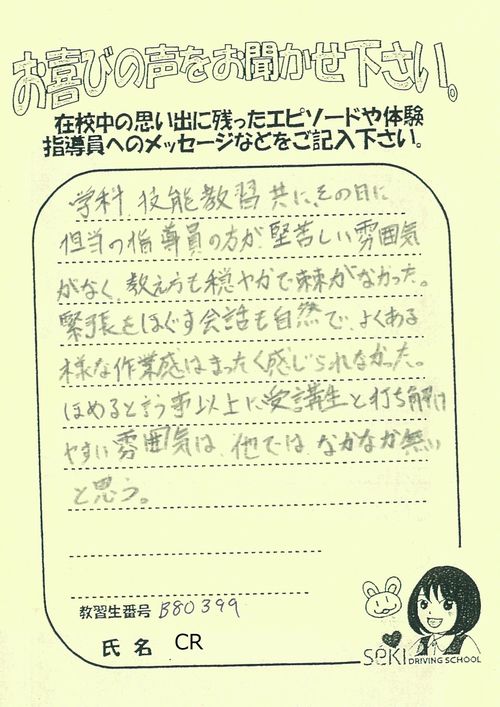 お喜びの声をお聞かせ下さい。
在校中の思い出に残ったエピソードや体験
指導員へのメッセージなどをご記入下さい。
学科、技能教習共に、その日に
担当の指導員の方が、堅苦しい雰囲気
がなく、教え方も穏やかで棘がなかった。
緊張をほぐす会話も自然で、よくある
様な作業感はまったく感じられなかった。
ほめると言う事以上に、受講生と打ち解け
やすい雰囲気は、他では、なかなか無い
と思う。
教習生番号 B80399
氏名 CR
SEKI DRIVING SCHOOL